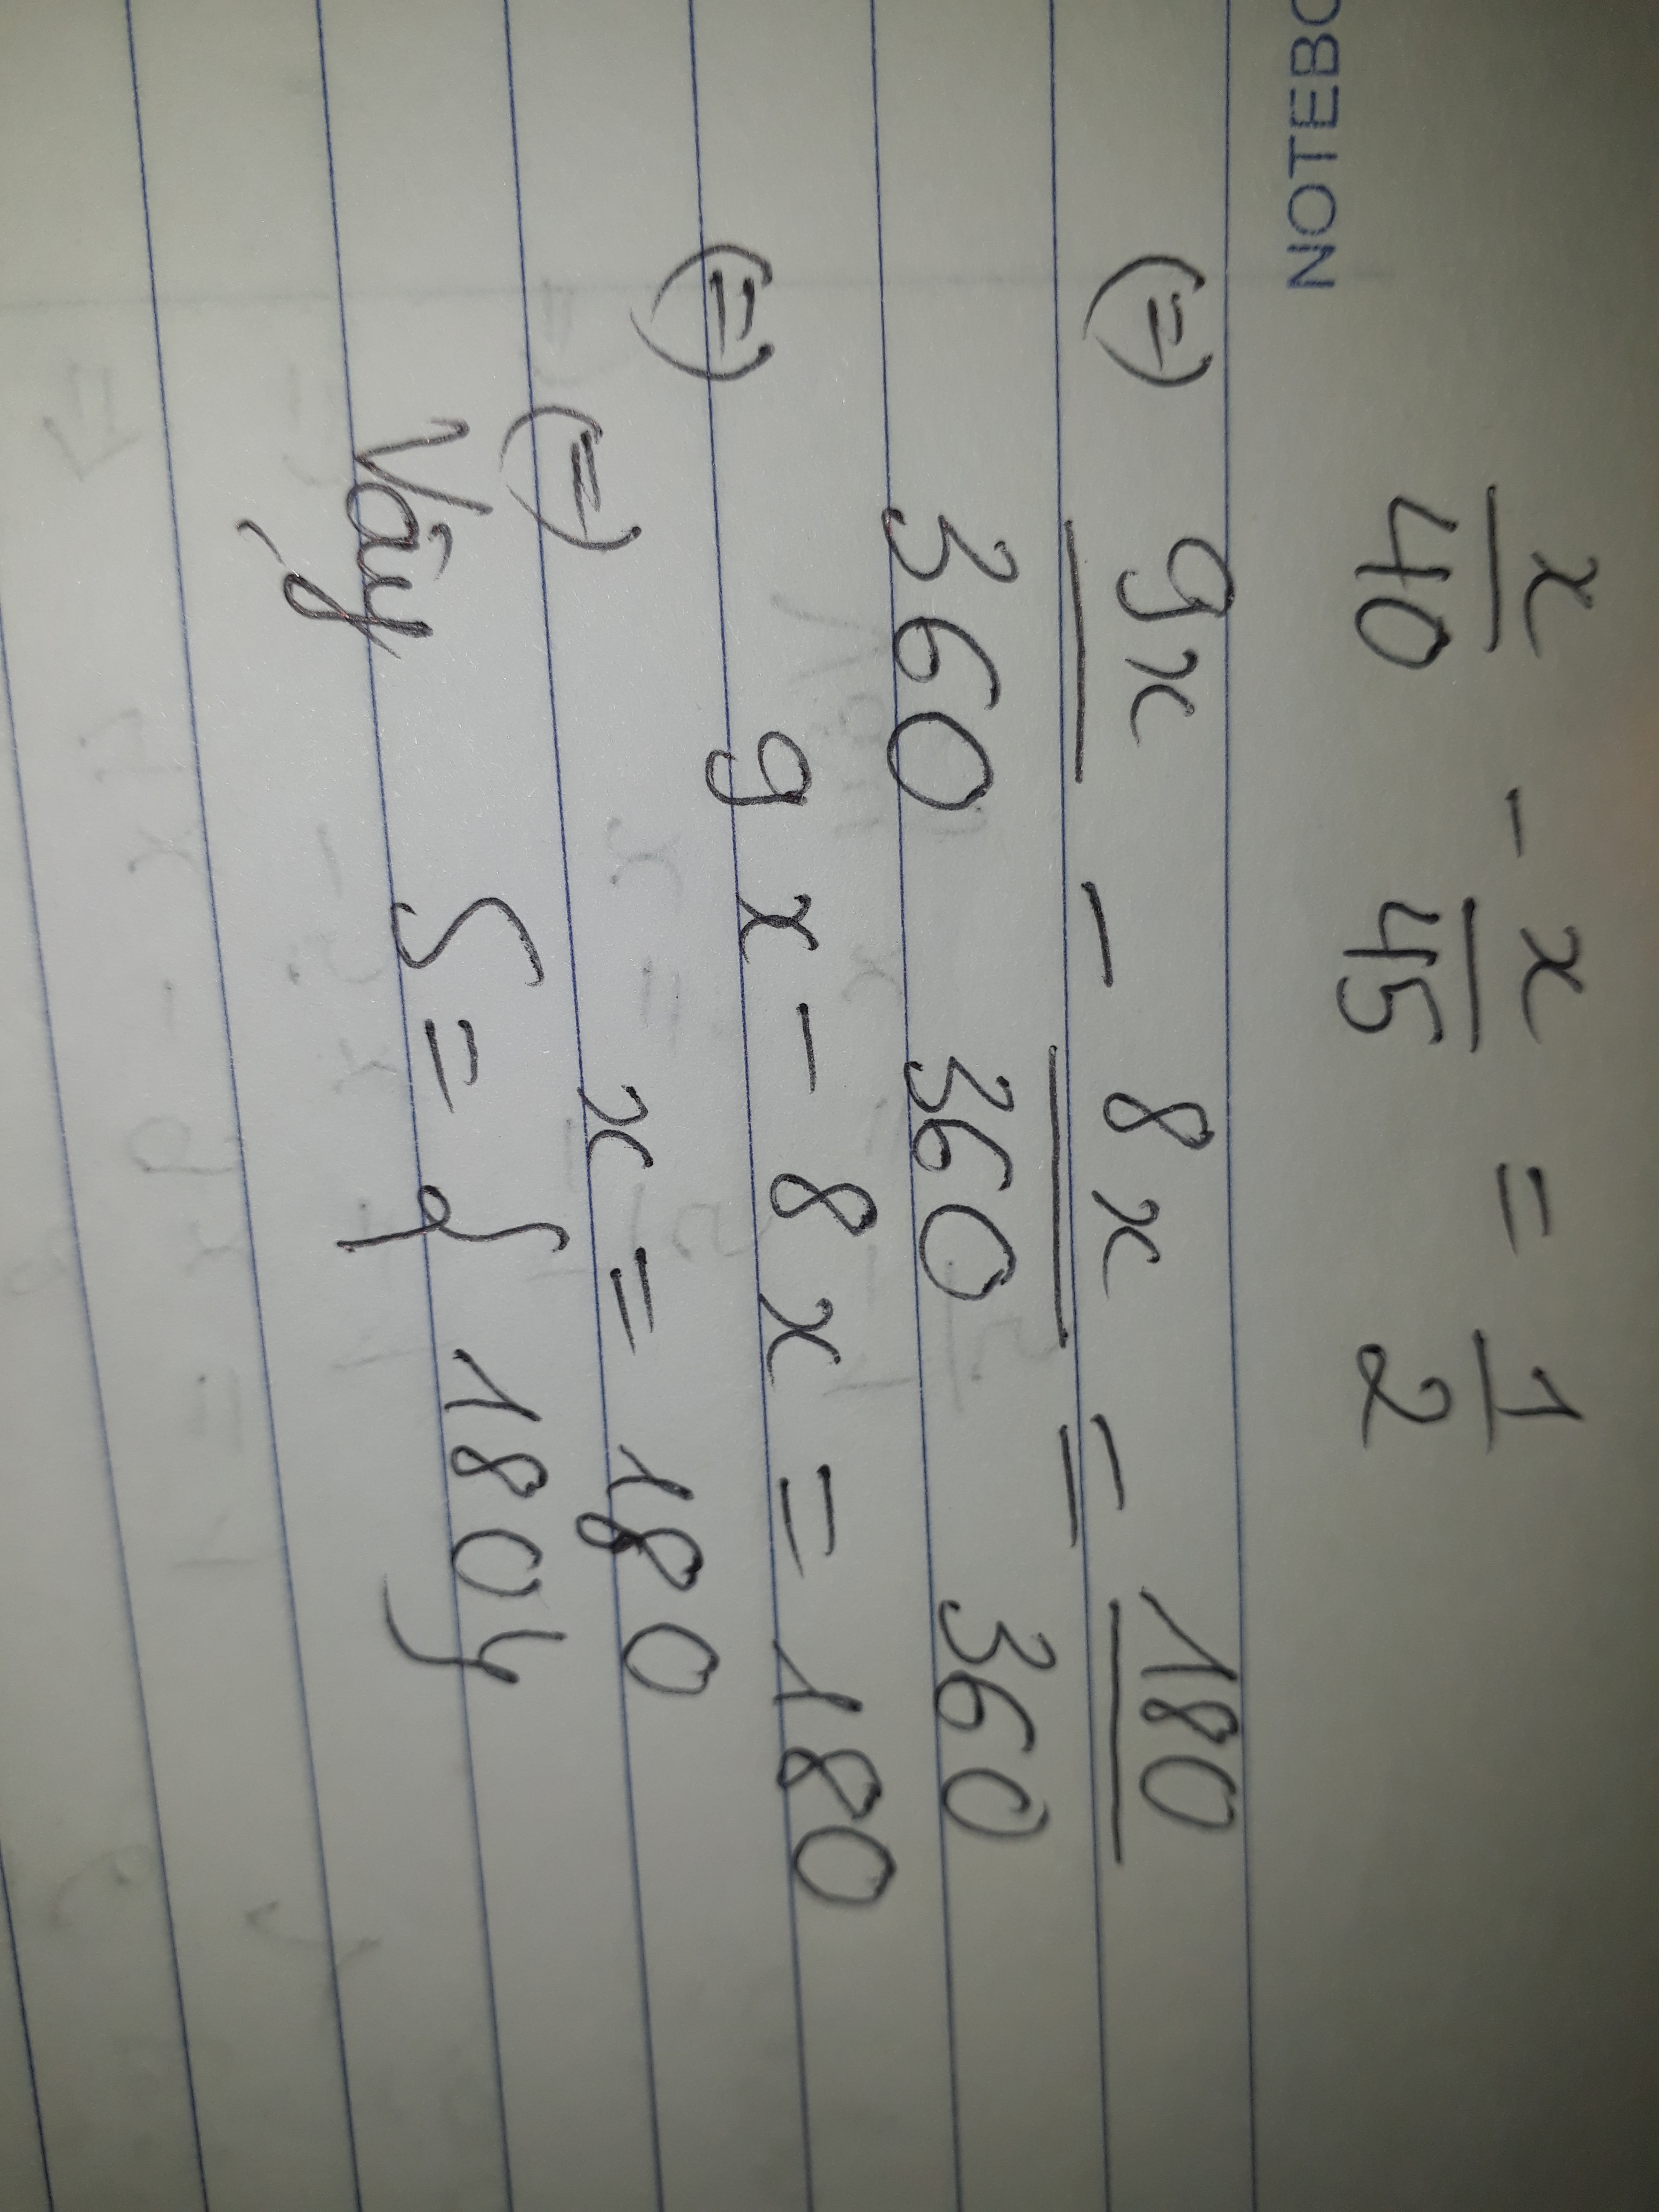 NOTEBO
x/40 - x/45 = 1/2
(=) 9x/360 - 8x/360 = 180/360
(=) 9x - 8x = 180
(=) x = 180
Vậy S = {180}